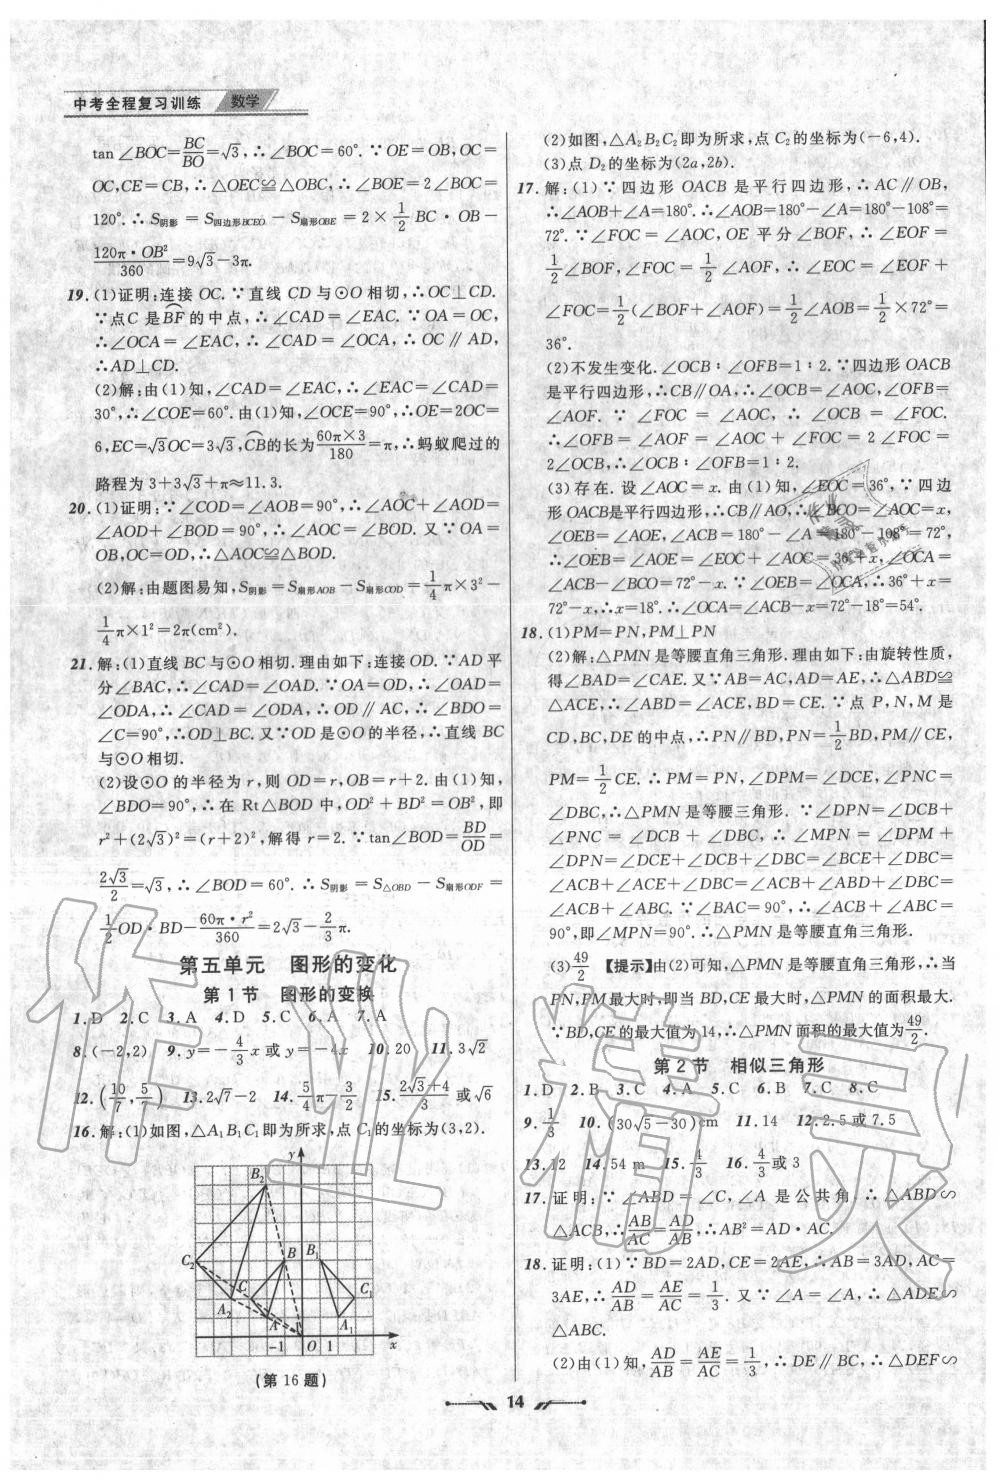 中考全程复习训练 数学
tan∠BOC=BC/BO=√3,∴∠BOC=60°.∵OE=OB,OC=
OC,CE=CB,∴△OEC≌△OBC,∴∠BOE=2∠BOC=
120°.∴S阴影=S四边形BCEO-S扇形OBE=2×1/2 BC·OB-
120π·OB²/360=9√3-3π.
19.(1)证明:连接OC.∵直线CD与⊙O相切,∴OC⊥CD.
∵点C是BF的中点,∴∠CAD=∠EAC.∵OA=OC,
∴∠OCA=∠EAC,∴∠CAD=∠OCA,∴OC∥AD,
∴AD⊥CD.
(2)解:由(1)知,∠CAD=∠EAC,∴∠EAC=∠CAD=
30°,∴∠COE=60°.由(1)知,∠OCE=90°,∴OE=2OC=
6,EC=√3OC=3√3,CB的长为60π×3/180=π,∴蚂蚁爬过的
路程为3+3√3+π≈11.3.
20.(1)证明:∵∠COD=∠AOB=90°,∴∠AOC+∠AOD=
∠AOD+∠BOD=90°,∴∠AOC=∠BOD.又∵OA=
OB,OC=OD,∴△AOC≌△BOD.
(2)解:由题图易知,S阴影=S扇形AOB-S扇形COD=1/4π×3²-
1/4π×1²=2π(cm²).
21.解:(1)直线BC与⊙O相切.理由如下:连接OD.∵AD平
分∠BAC,∴∠CAD=∠OAD.∵OA=OD,∴∠OAD=
∠ODA,∴∠CAD=∠ODA,∴OD∥AC,∴∠BDO=
∠C=90°,∴OD⊥BC.又∵OD是⊙O的半径,∴直线BC
与⊙O相切.
(2)设⊙O的半径为r,则OD=r,OB=r+2.由(1)知,
∠BDO=90°,∴在Rt△BOD中,OD²+BD²=OB²,即
r²+(2√3)²=(r+2)²,解得r=2.∵tan∠BOD=BD/OD=
2√3/2=√3,∴∠BOD=60°.∴S阴影=S△OBD-S扇形ODF=
1/2OD·BD-60π·r²/360=2√3-2/3π.
第五单元 图形的变化
第1节 图形的变换
1.D 2.C 3.A 4.D 5.C 6.A 7.A
8.(-2,2) 9.y=-4/3x或y=-4x 10.20 11.3√2
12.(10/7,5/7) 13.2√7-2 14.5/4π-3/2 15.(2√3+4)/3或√6
16.解:(1)如图,△A₁B₁C₁即为所求,点C₁的坐标为(3,2).
y
B₂
C₂ B B₁
C C₁
A₂ A A₁
-1 O 1 x
(第16题)
(2)如图,△A₂B₂C₂即为所求,点C₂的坐标为(-6,4).
(3)点D₂的坐标为(2a,2b).
17.解:(1)∵四边形OACB是平行四边形,∴AC∥OB,
∴∠AOB+∠A=180°.∴∠AOB=180°-∠A=180°-108°=
72°.∵∠FOC=∠AOC,OE平分∠BOF,∴∠EOF=
1/2∠BOF,∠FOC=1/2∠AOF,∴∠EOC=∠EOF+
∠FOC=1/2(∠BOF+∠AOF)=1/2∠AOB=1/2×72°=
36°.
(2)不发生变化.∠OCB∶∠OFB=1∶2.∵四边形OACB
是平行四边形,∴CB∥OA,∴∠OCB=∠AOC,∠OFB=
∠AOF.∵∠FOC=∠AOC,∴∠OCB=∠FOC.
∴∠OFB=∠AOF=∠AOC+∠FOC=2∠FOC=
2∠OCB,∴∠OCB∶∠OFB=1∶2.
(3)存在.设∠AOC=x.由(1)知,∠EOC=36°,∵四边
形OACB是平行四边形,∴CB∥AO,∴∠BCO=∠AOC=x,
∠OEB=∠AOE,∠ACB=180°-∠A=180°-108°=72°,
∴∠OEB=∠AOE=∠EOC+∠AOC=36°+x,∠OCA=
∠ACB-∠BCO=72°-x.∵∠OEB=∠OCA,∴36°+x=
72°-x,∴x=18°.∴∠OCA=∠ACB-x=72°-18°=54°.
18.(1)PM=PN,PM⊥PN
(2)解:△PMN是等腰直角三角形.理由如下:由旋转性质,
得∠BAD=∠CAE.又∵AB=AC,AD=AE,∴△ABD≌
△ACE,∴∠ABD=∠ACE,BD=CE.∵点P,N,M是
CD,BC,DE的中点,∴PN∥BD,PN=1/2BD,PM∥CE,
PM=1/2CE.∴PM=PN,∠DPM=∠DCE,∠PNC=
∠DBC,∴△PMN是等腰三角形.∵∠DPN=∠DCB+
∠PNC=∠DCB+∠DBC,∴∠MPN=∠DPM+
∠DPN=∠DCE+∠DCB+∠DBC=∠BCE+∠DBC=
∠ACB+∠ACE+∠DBC=∠ACB+∠ABD+∠DBC=
∠ACB+∠ABC.∵∠BAC=90°,∴∠ACB+∠ABC=
90°,即∠MPN=90°,∴△PMN是等腰直角三角形.
(3)49/2 【提示】由(2)可知,△PMN是等腰直角三角形,∴当
PN,PM最大时,即当BD,CE最大时,△PMN的面积最大.
∵BD,CE的最大值为14,∴△PMN面积的最大值为49/2.
第2节 相似三角形
1.D 2.B 3.C 4.A 5.C 6.B 7.C 8.C
9.1/3 10.(30√5-30)cm 11.14 12.2.5或7.5
13.12 14.54 m 15.4/3 16.4/3或3
17.证明:∵∠ABD=∠C,∠A是公共角,∴△ABD∽
△ACB,∴AB/AC=AD/AB,∴AB²=AD·AC.
18.证明:(1)∵BD=2AD,CE=2AE,∴AB=3AD,AC=
3AE,∴AD/AB=AE/AC=1/3.又∵∠A=∠A,∴△ADE∽
△ABC.
(2)由(1)知,AD/AB=AE/AC=1/3,∴DE∥BC,∴△DEF∽
14
作业精灵